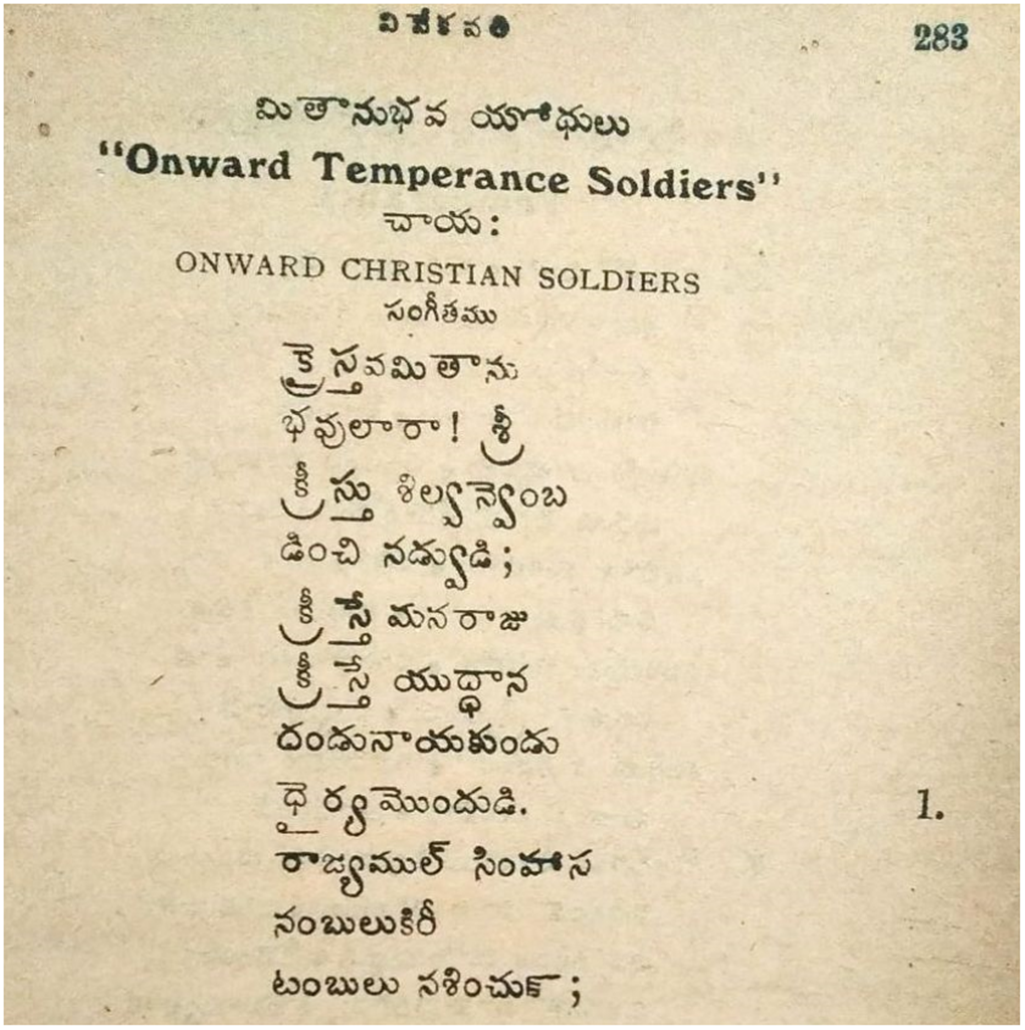 వివేకవతి 283
మితానుభవ యోధులు
“Onward Temperance Soldiers”
చాయ:
ONWARD CHRISTIAN SOLDIERS
సంగీతము
క్రైస్తవమితాను
భవులారా! శ్రీ
క్రీస్తు శిల్వన్వెంబ
డించి నడ్వుడి;
క్రీస్తే మనరాజు
క్రీస్తే యుద్ధాన
దండునాయకుండు
ధైర్యమొందుడి. 1.
రాజ్యముల్ సింహాస
నంబులుకిరీ
టంబులు నశించున్;